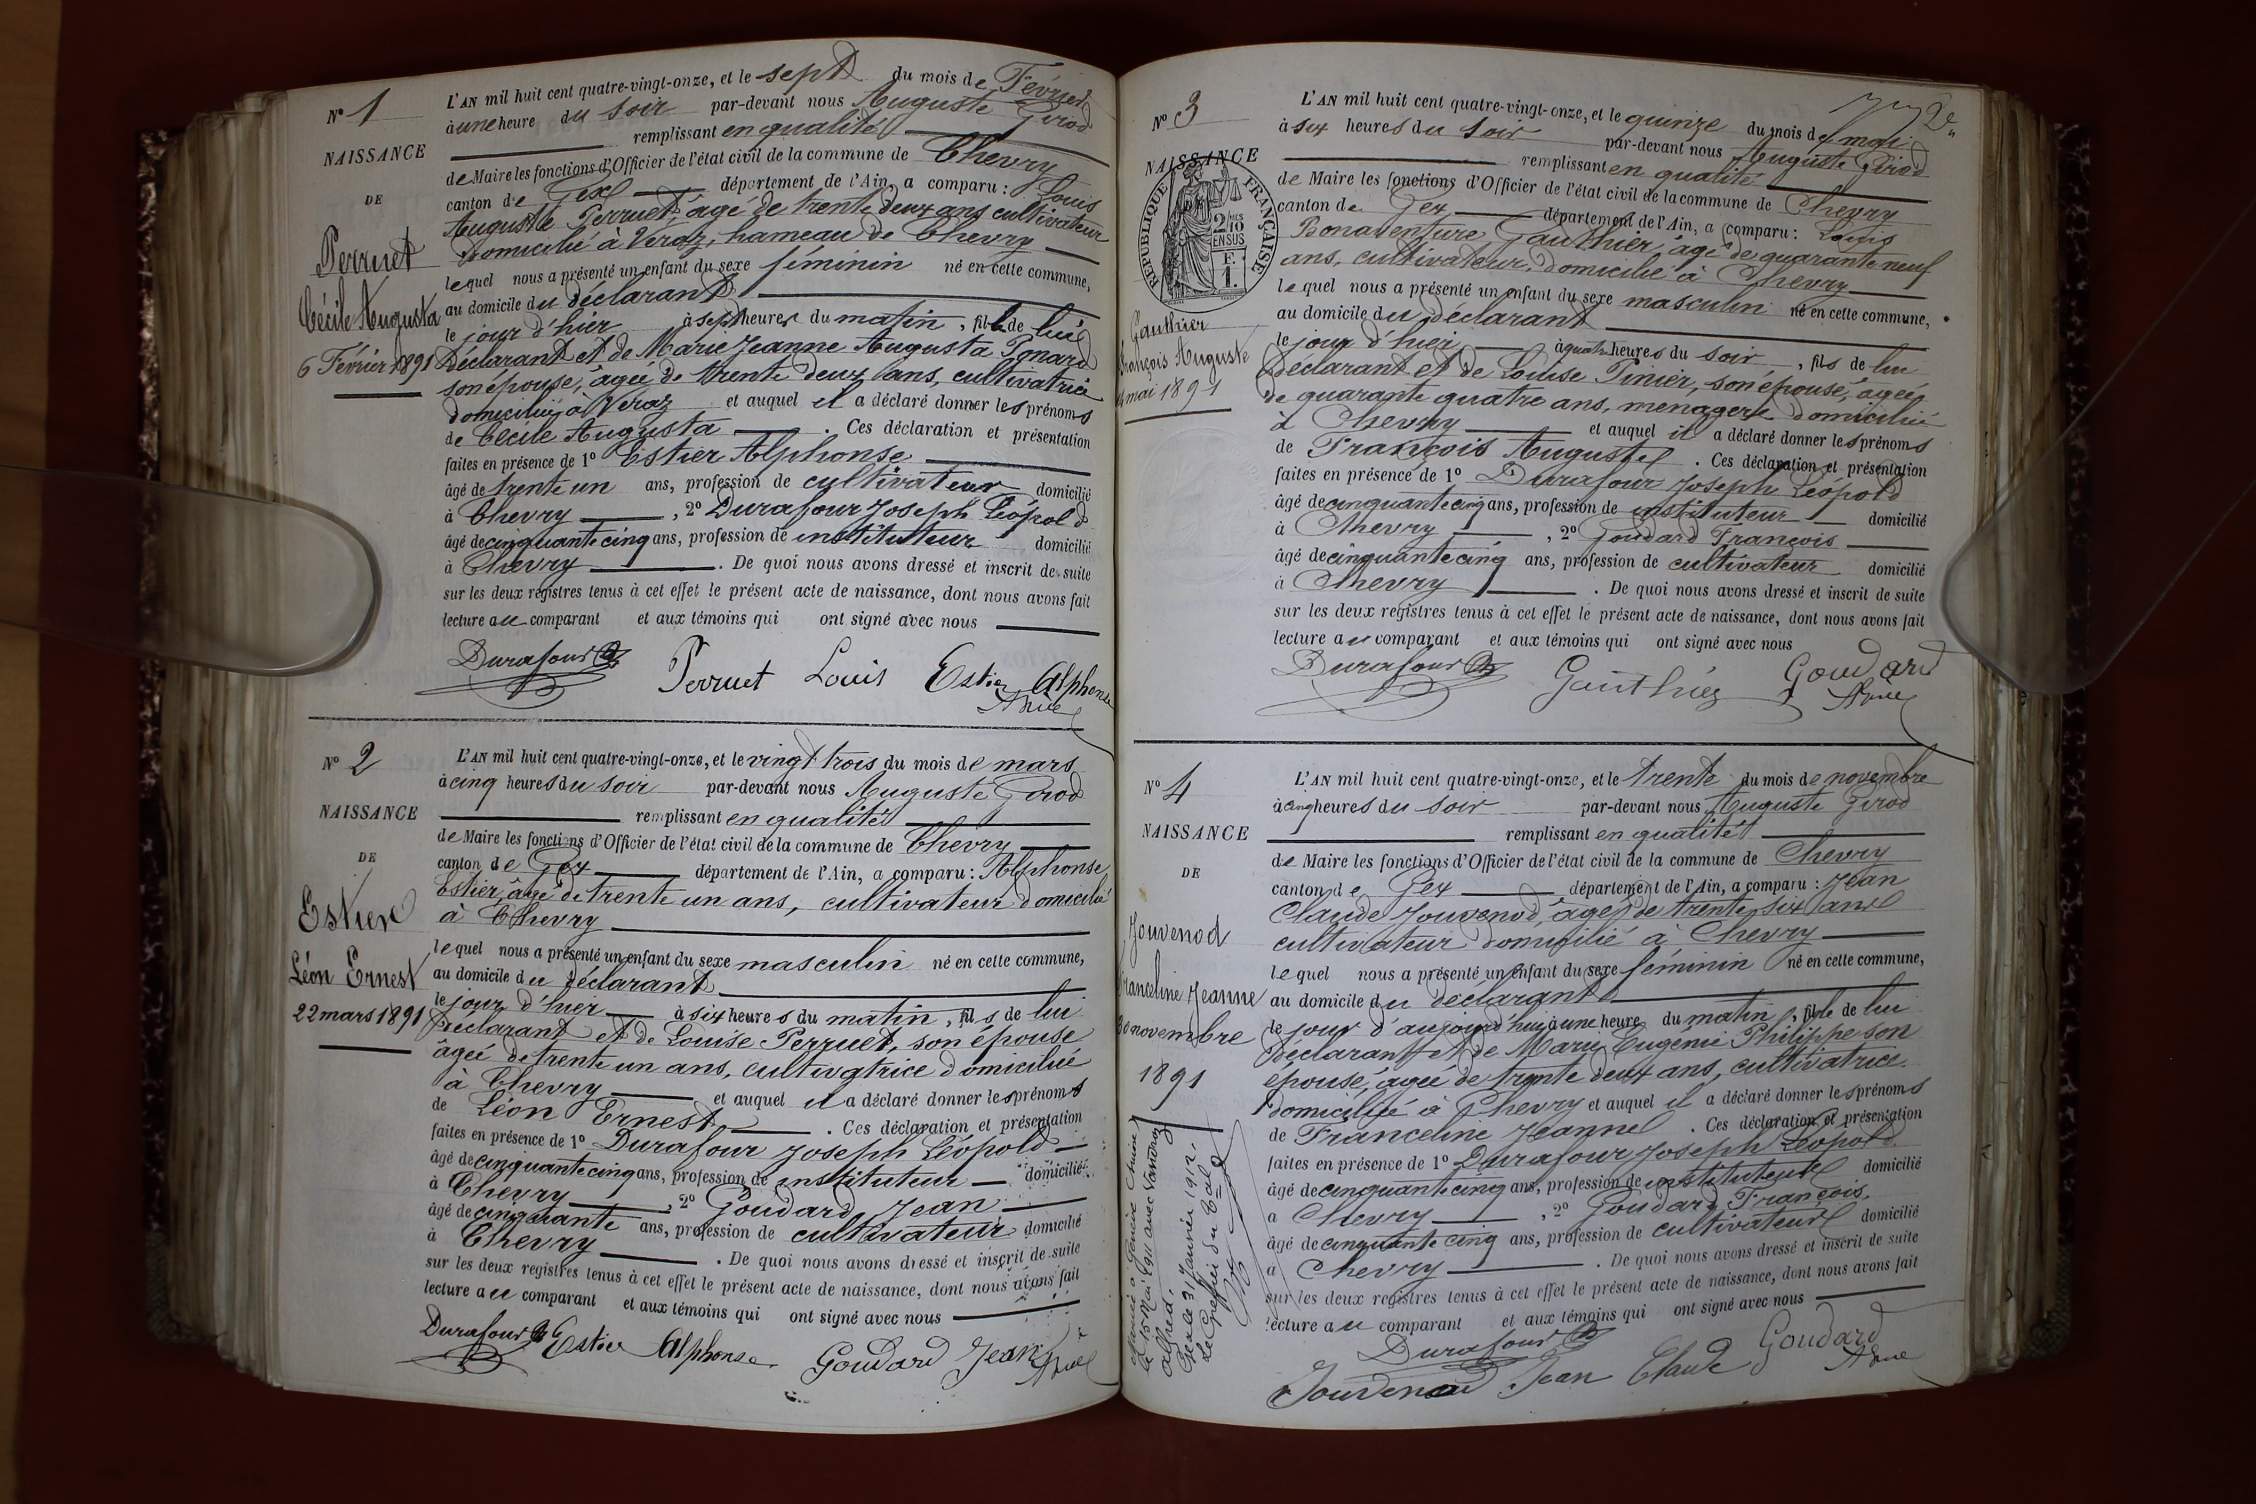 N° 1
NAISSANCE
DE
Perruet
Cécile Augusta
6 Février 1891
L'AN mil huit cent quatre-vingt-onze, et le sept du mois de Février
à une heure du soir par-devant nous Auguste Girod
remplissant en qualité
de Maire les fonctions d'Officier de l'état civil de la commune de Chevry
canton de Gex département de l'Ain, a comparu : Louis
Auguste Perruet, âgé de trente deux ans cultivateur
domicilié à Véraz, hameau de Chevry
lequel nous a présenté un enfant du sexe féminin né en cette commune,
au domicile du déclarant
le jour d'hier à sept heures du matin, fille de lui
déclarant et de Marie Jeanne Augusta Ponard
son épouse, âgée de trente deux ans, cultivatrice
domiciliée à Veraz et auquel il a déclaré donner les prénoms
de Cécile Augusta . Ces déclaration et présentation
faites en présence de 1° Estier Alphonse
âgé de trente un ans, profession de cultivateur domicilié
à Chevry , 2° Durafour Joseph Léopold
âgé de cinquante cinq ans, profession de instituteur domicilié
à Chevry . De quoi nous avons dressé et inscrit de suite
sur les deux registres tenus à cet effet le présent acte de naissance, dont nous avons fait
lecture au comparant et aux témoins qui ont signé avec nous
Durafour Perruet Louis Estier Alphonse
N° 2
NAISSANCE
DE
Estier
Léon Ernest
22 mars 1891
L'AN mil huit cent quatre-vingt-onze, et le vingt trois du mois de mars
à cinq heures du soir par-devant nous Auguste Girod
remplissant en qualité
de Maire les fonctions d'Officier de l'état civil de la commune de Chevry
canton de Gex département de l'Ain, a comparu : Alphonse
Estier, âgé de trente un ans, cultivateur domicilié
à Chevry
lequel nous a présenté un enfant du sexe masculin né en cette commune,
au domicile du déclarant
le jour d'hier à six heures du matin, fils de lui
déclarant et de Louise Perruet, son épouse
âgée de trente un ans, cultivatrice domiciliée
à Chevry et auquel il a déclaré donner les prénoms
de Léon Ernest . Ces déclaration et présentation
faites en présence de 1° Durafour Joseph Léopold
âgé de cinquante cinq ans, profession de instituteur domicilié
à Chevry , 2° Goudard Jean
âgé de cinquante ans, profession de cultivateur domicilié
à Chevry . De quoi nous avons dressé et inscrit de suite
sur les deux registres tenus à cet effet le présent acte de naissance, dont nous avons fait
lecture au comparant et aux témoins qui ont signé avec nous
Durafour Estier Alphonse Goudard Jean
N° 3
NAISSANCE
RÉPUBLIQUE FRANÇAISE
2/10
EN SUS
F.
1.
Gauthier
François Auguste
mai 1891
L'AN mil huit cent quatre-vingt-onze, et le quinze du mois de mai
à six heures du soir par-devant nous Auguste Girod
remplissant en qualité
de Maire les fonctions d'Officier de l'état civil de la commune de Chevry
canton de Gex département de l'Ain, a comparu : Louis
Bonaventure Gauthier, âgé de quarante neuf
ans, cultivateur, domicilié à Chevry
lequel nous a présenté un enfant du sexe masculin né en cette commune,
au domicile du déclarant
le jour d'hier à quatre heures du soir, fils de lui
déclarant et de Louise Pinier, son épouse, âgée
de quarante quatre ans, menagere domiciliée
à Chevry et auquel il a déclaré donner les prénoms
de François Auguste . Ces déclaration et présentation
faites en présence de 1° Durafour Joseph Léopold
âgé de cinquante cinq ans, profession de instituteur domicilié
à Chevry , 2° Goudard François
âgé de cinquante cinq ans, profession de cultivateur domicilié
à Chevry . De quoi nous avons dressé et inscrit de suite
sur les deux registres tenus à cet effet le présent acte de naissance, dont nous avons fait
lecture au comparant et aux témoins qui ont signé avec nous
Durafour Gauthier Goudard
N° 4
NAISSANCE
DE
Jouvenod
Franceline Jeanne
30 novembre
1891
le 13 Mai 1911 avec
Alfred.
Gex le 31 Janvier 1912.
Le Greffier du
L'AN mil huit cent quatre-vingt-onze, et le trente du mois de novembre
à cinq heures du soir par-devant nous Auguste Girod
remplissant en qualité
de Maire les fonctions d'Officier de l'état civil de la commune de Chevry
canton de Gex département de l'Ain, a comparu : Jean
Claude Jouvenod, âgé de trente six ans
cultivateur domicilié à Chevry
lequel nous a présenté un enfant du sexe féminin né en cette commune,
au domicile du déclarant
le jour d'aujourd'hui à une heure du matin, fille de lui
déclarant et de Marie Eugénie Philippe son
épouse, âgée de trente deux ans, cultivatrice
domiciliée à Chevry et auquel il a déclaré donner les prénoms
de Franceline Jeanne . Ces déclaration et présentation
faites en présence de 1° Durafour Joseph Léopold
âgé de cinquante cinq ans, profession de instituteur domicilié
à Chevry , 2° Goudard François
âgé de cinquante cinq ans, profession de cultivateur domicilié
à Chevry . De quoi nous avons dressé et inscrit de suite
sur les deux registres tenus à cet effet le présent acte de naissance, dont nous avons fait
lecture au comparant et aux témoins qui ont signé avec nous
Durafour Goudard
Jouvenod Jean Claude